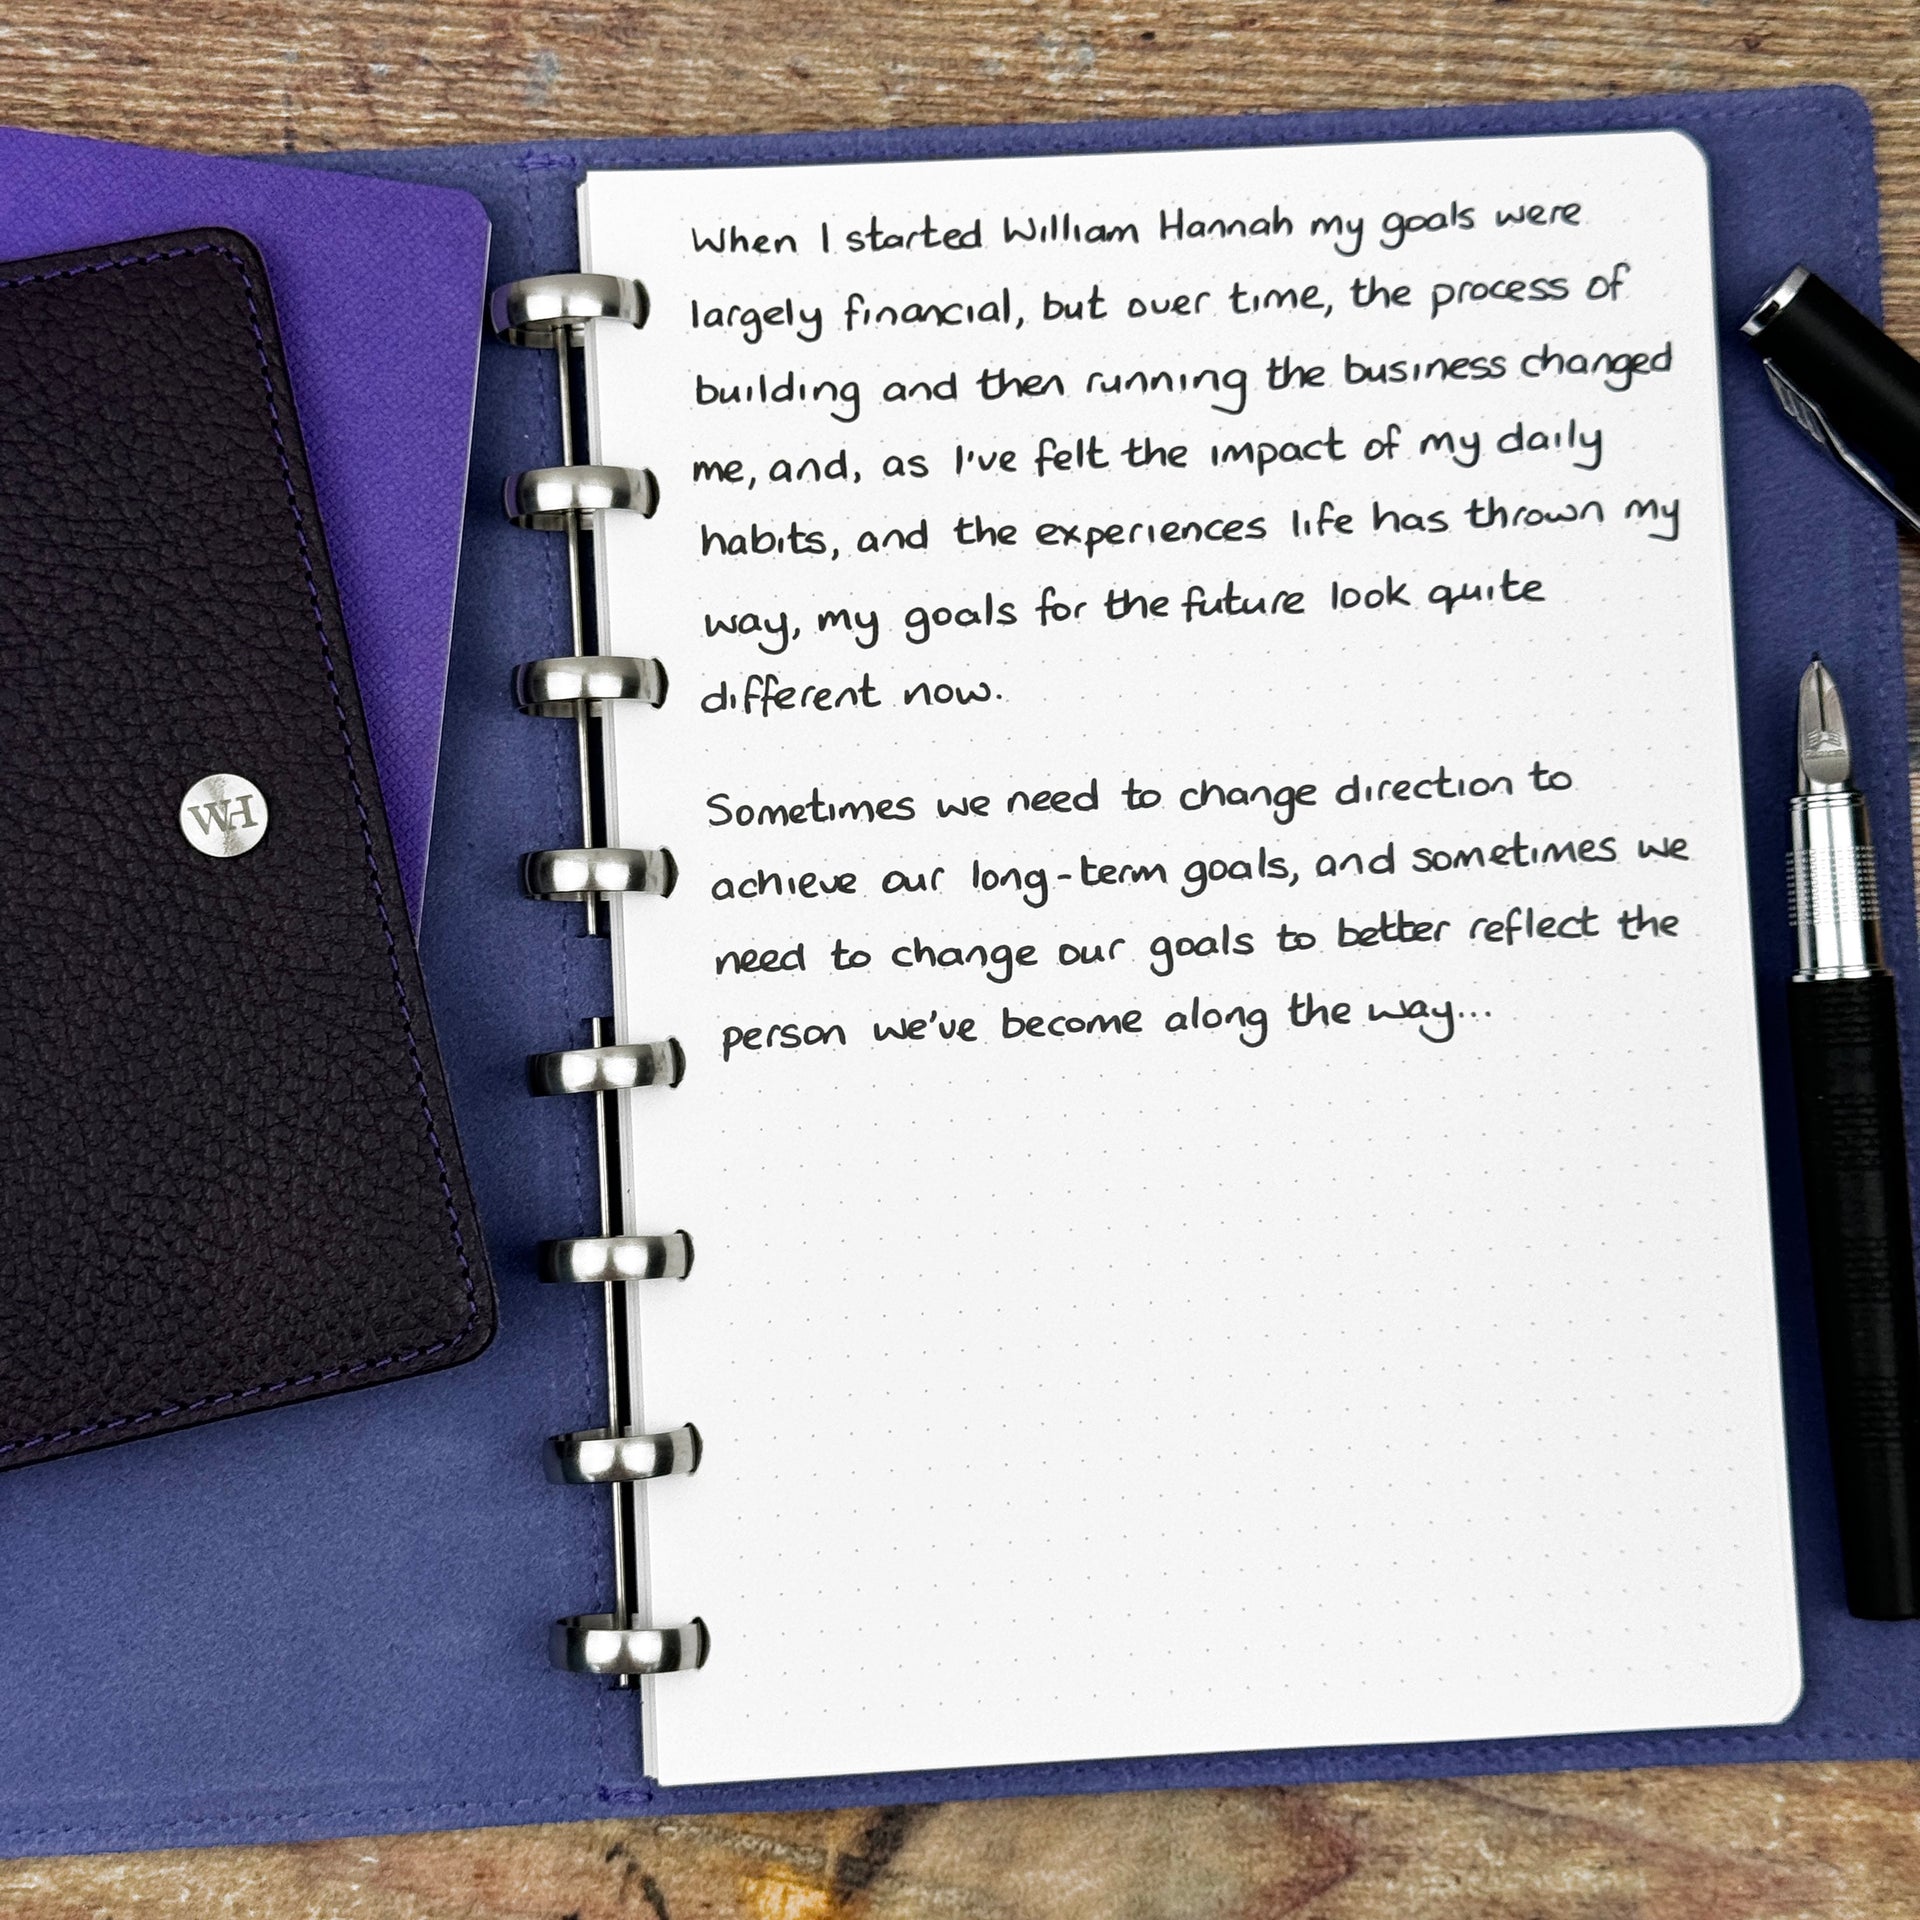 When I started William Hannah my goals were
largely financial, but over time, the process of
building and then running the business changed
me, and, as I've felt the impact of my daily
habits, and the experiences life has thrown my
way, my goals for the future look quite
different now.
Sometimes we need to change direction to
achieve our long-term goals, and sometimes we
need to change our goals to better reflect the
person we've become along the way...
WH